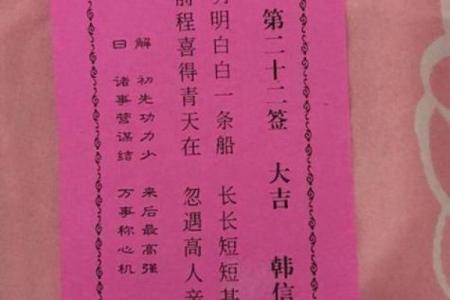 第二十二签 大吉 韩信
明白白一条船 长长短短
前程喜得青天在 忽遇高人
解 初先功力少 来后最高强
曰 诸事营谋结 万事称心机